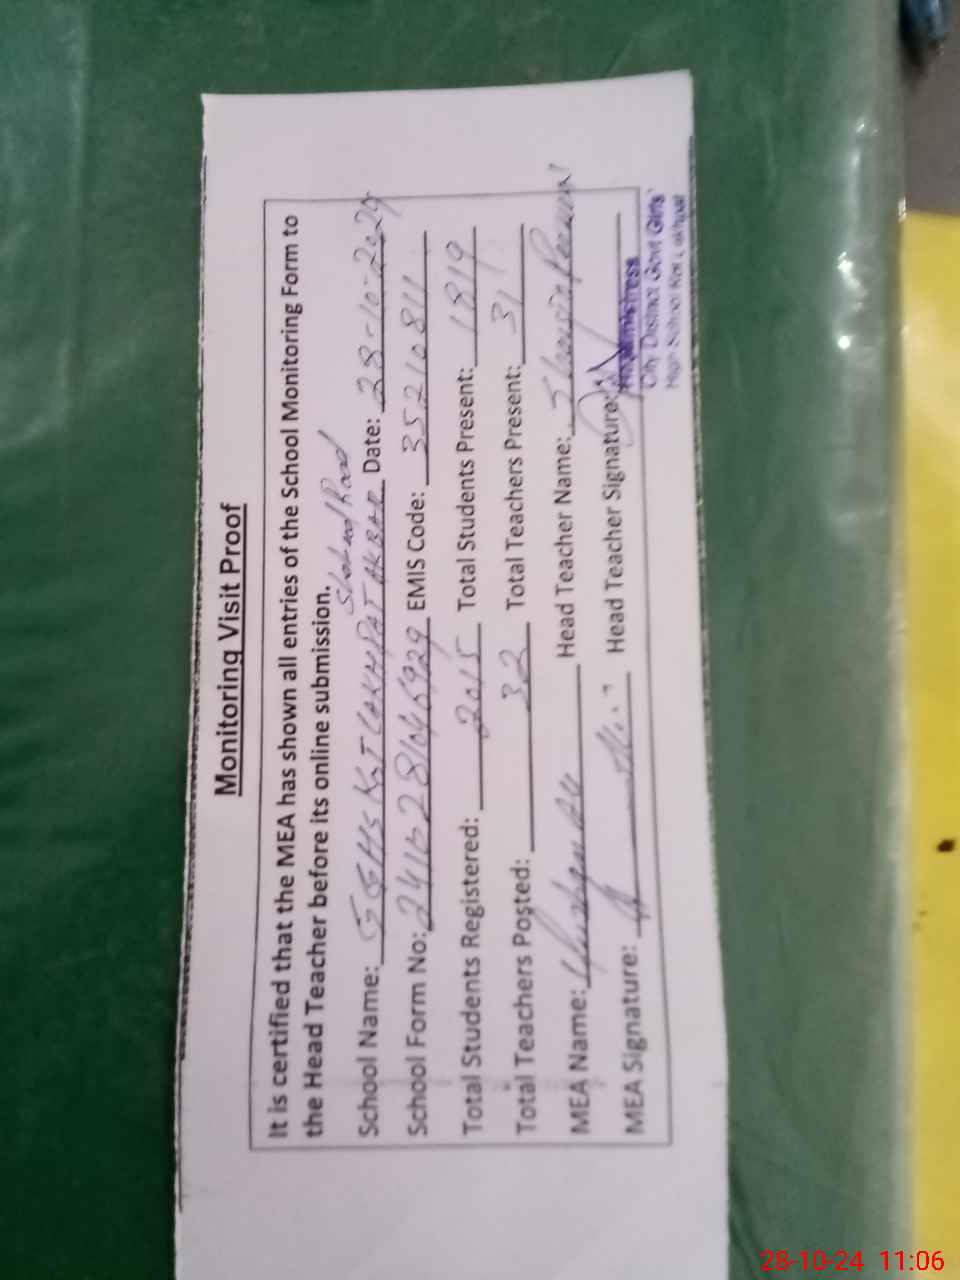 Monitoring Visit Proof
It is certified that the MEA has shown all entries of the School Monitoring Form to
the Head Teacher before its online submission.
School Name: GGHS KOT LAKHPAT AKBAR Shaheed Road Date: 28-10-2024
School Form No: EMIS Code: 35210811
Total Students Registered: 2015 Total Students Present: 1819
Total Teachers Posted: 32 Total Teachers Present: 31
MEA Name: Head Teacher Name:
MEA Signature: Head Teacher Signature:
Headmistress
City District Govt Girls
High School Kot Lakhpat
28-10-24 11:06